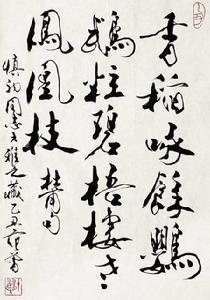 香稻啄餘鸚
鵡粒碧梧棲老
鳳凰枝 句
同志雅藏乙丑